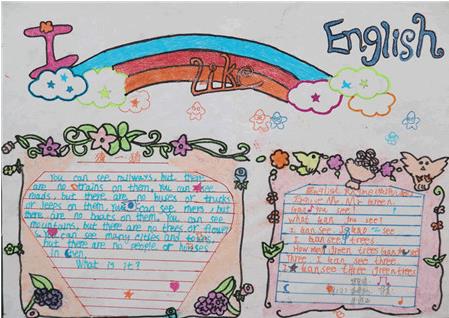 I
Like
English
猜一猜
You can see railways, but there
are no trains on them. You can see
roads, but there are no buses or trucks
or bikes on them. You can see rivers, but
there are no boats on them. You can see
mountains, but there are no trees or flower
You can see many cities and towns,
but there are no people or houses
in them.
What is it?
English
green
Can you see?
What can you see?
I can see I can see
I can see trees
How many green trees can see
Three I can see three
I can see three green trees